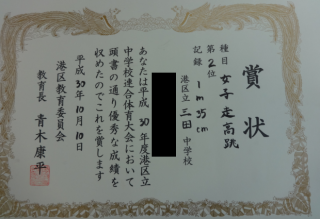 賞状
種目 女子走高跳
第2位
記録 1m35cm
港区立 三田 中学校
あなたは平成30年度港区立
中学校連合体育大会において
頭書の通り優秀な成績を
収めたのでこれを賞します
平成30年10月10日
港区教育委員会
教育長 青木康平